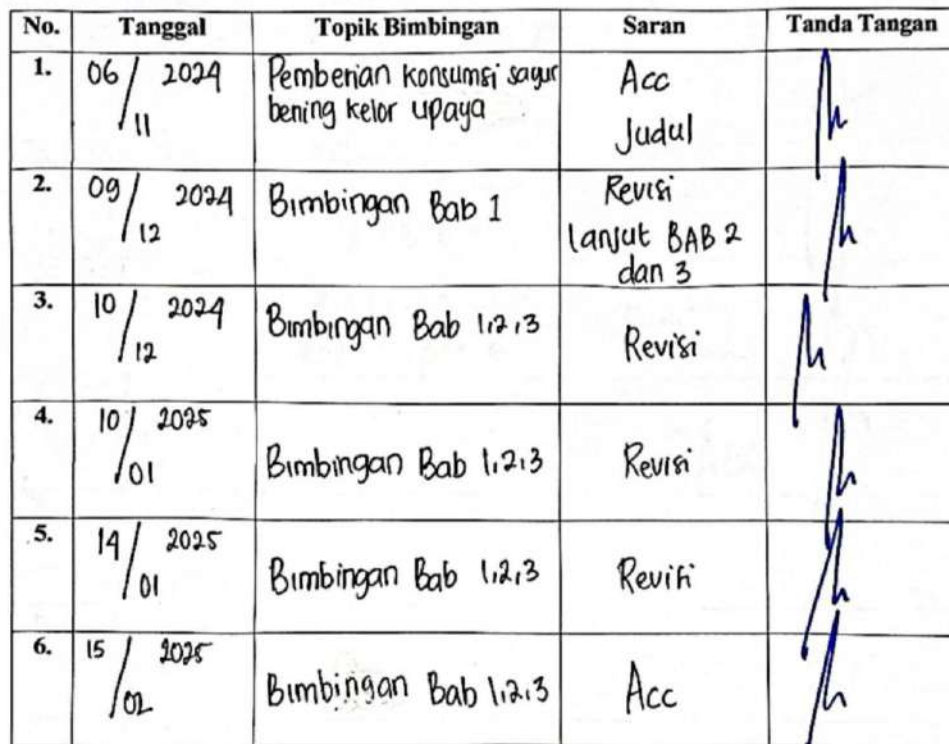 No. Tanggal Topik Bimbingan Saran Tanda Tangan
1. 06/11 2024 Pemberian konsumsi sayur bening kelor upaya Acc Judul
2. 09/12 2024 Bimbingan Bab 1 Revisi lanjut BAB 2 dan 3
3. 10/12 2024 Bimbingan Bab 1,2,3 Revisi
4. 10/01 2025 Bimbingan Bab 1,2,3 Revisi
5. 14/01 2025 Bimbingan Bab 1,2,3 Revisi
6. 15/02 2025 Bimbingan Bab 1,2,3 Acc